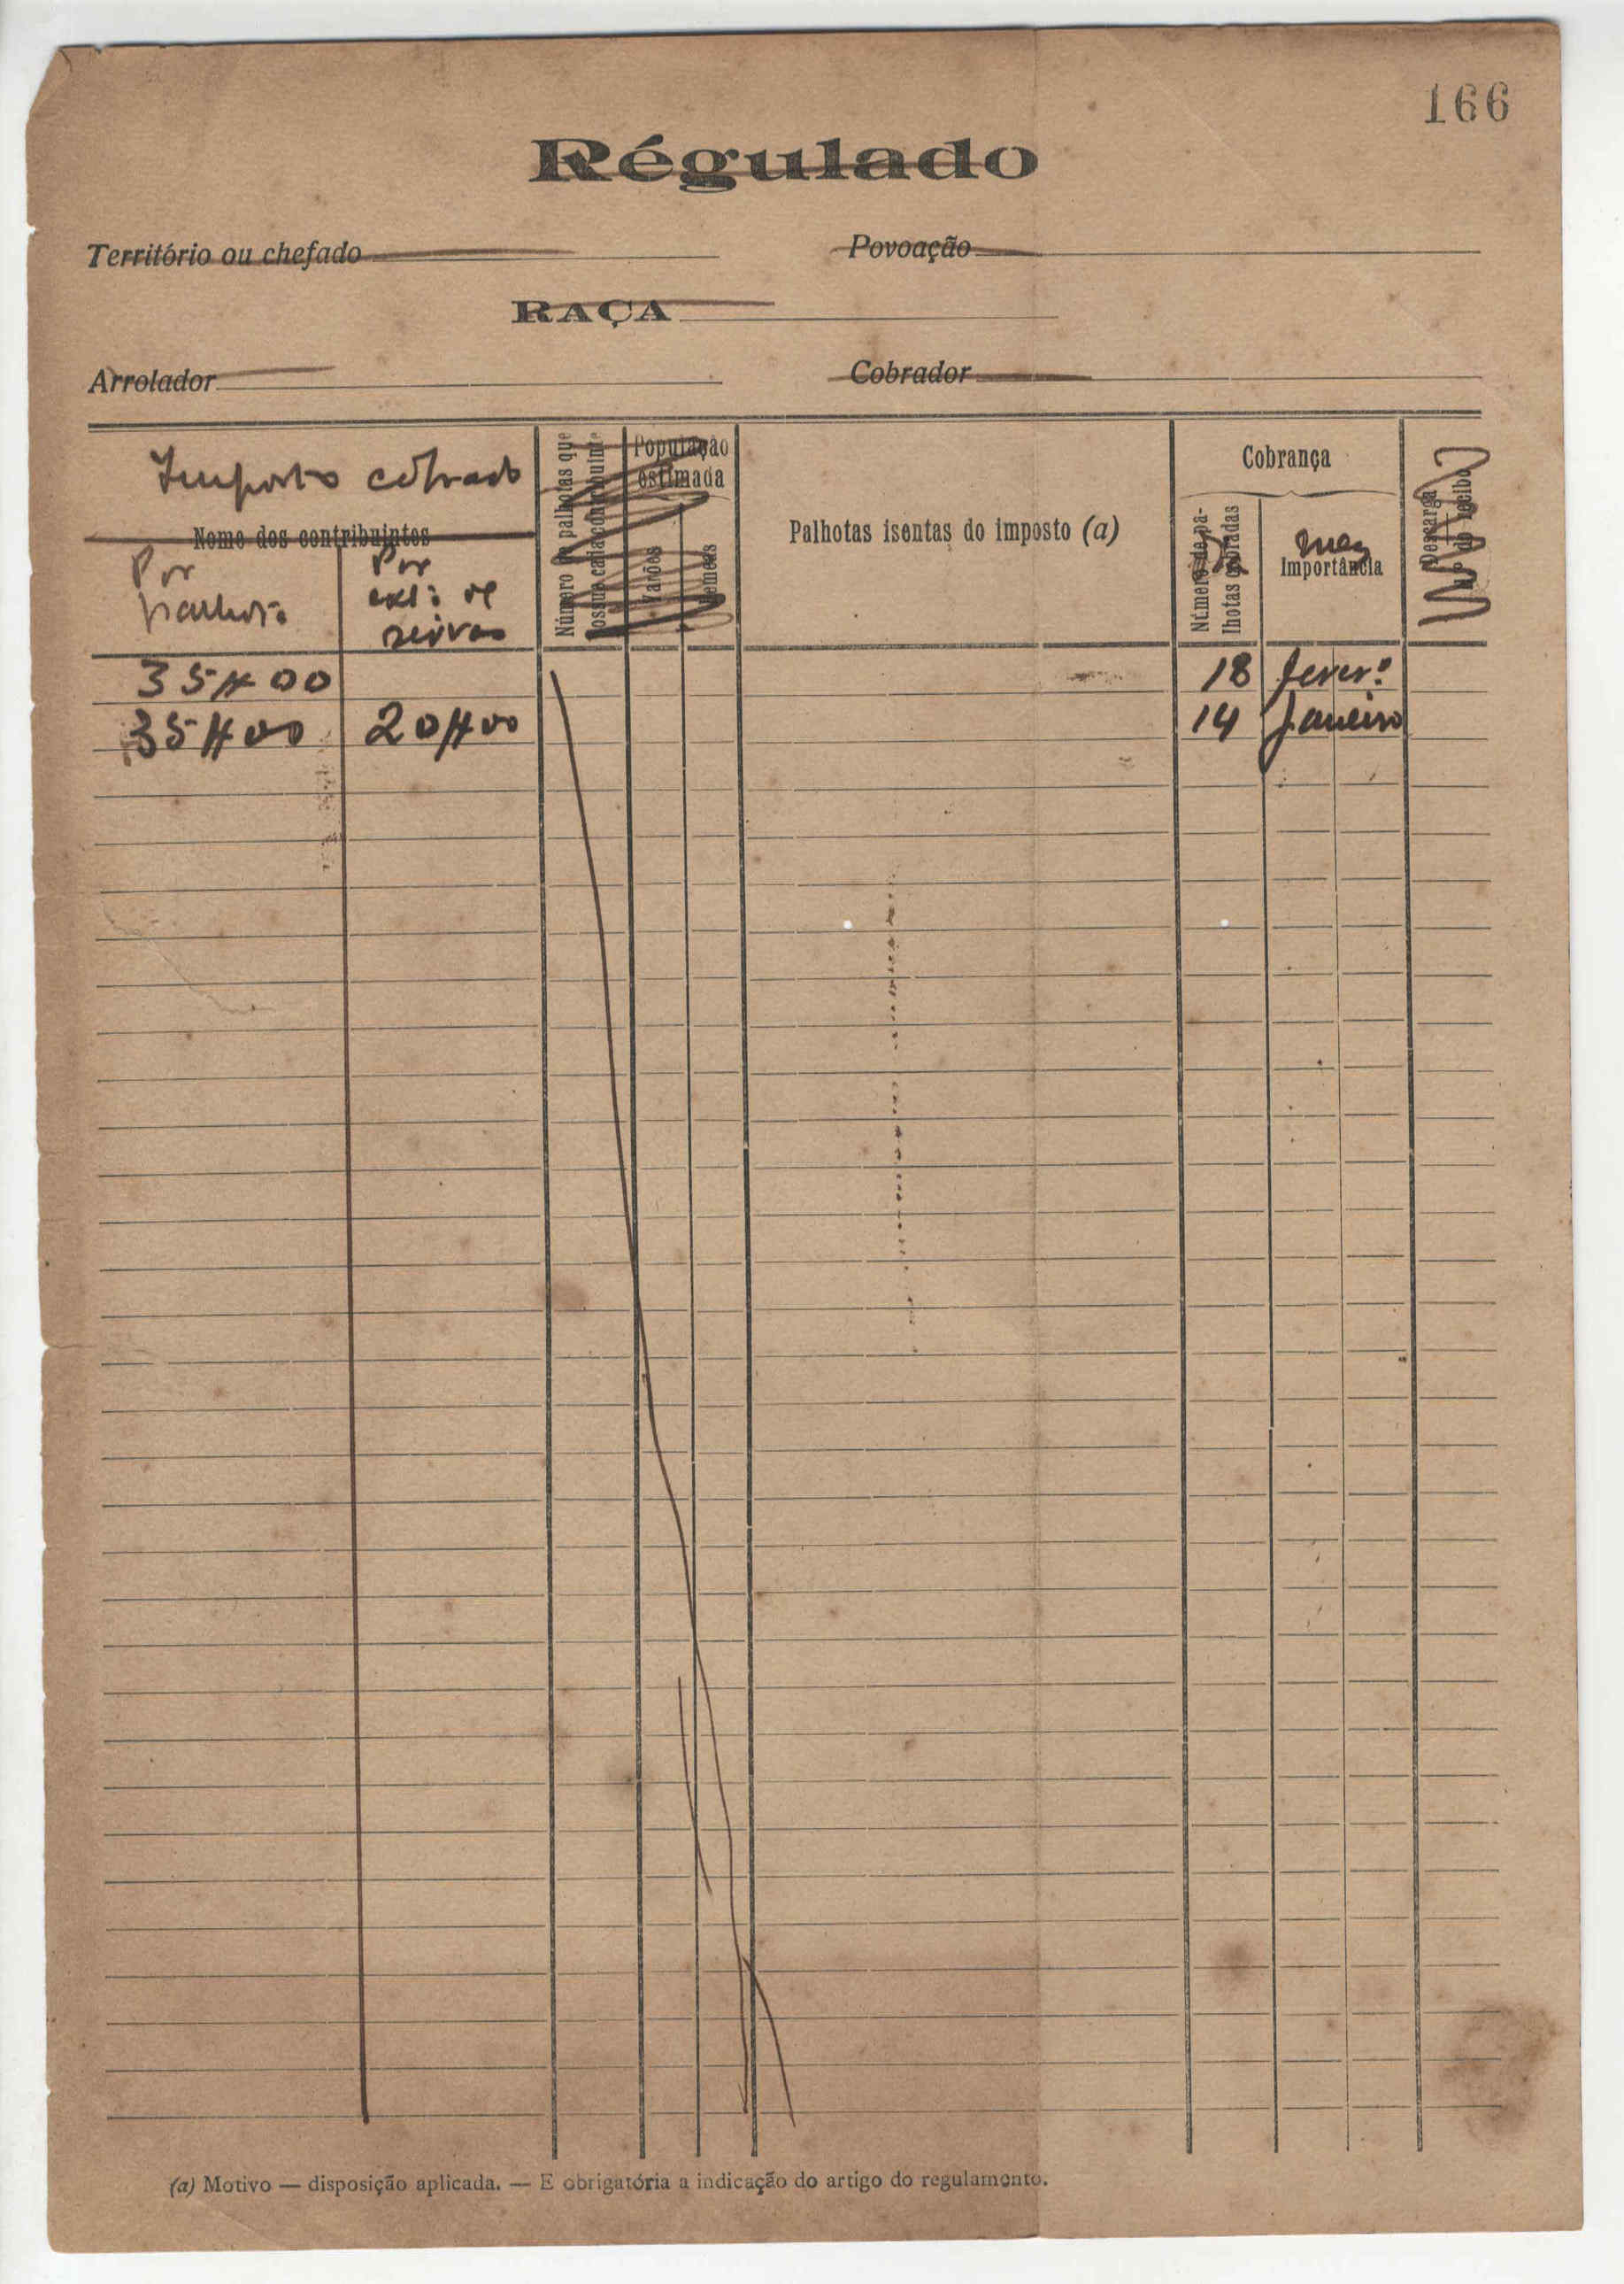 166
Régulado
Território ou chefado
Povoação
RAÇA
Arrolador
Cobrador
Imposto cobrado
Nome dos contribuintes
Por palhota
Por
Número de palhotas que possue cada contribuinte
População estimada
Varões
Femeas
Palhotas isentas do imposto (a)
Cobrança
Número de palhotas cobradas
Mez
Importância
Descarga
N.º do recibo
35$00 18 Fever.º
35$00 20$00 14 Janeiro
(a) Motivo — disposição aplicada. — E obrigatória a indicação do artigo do regulamento.